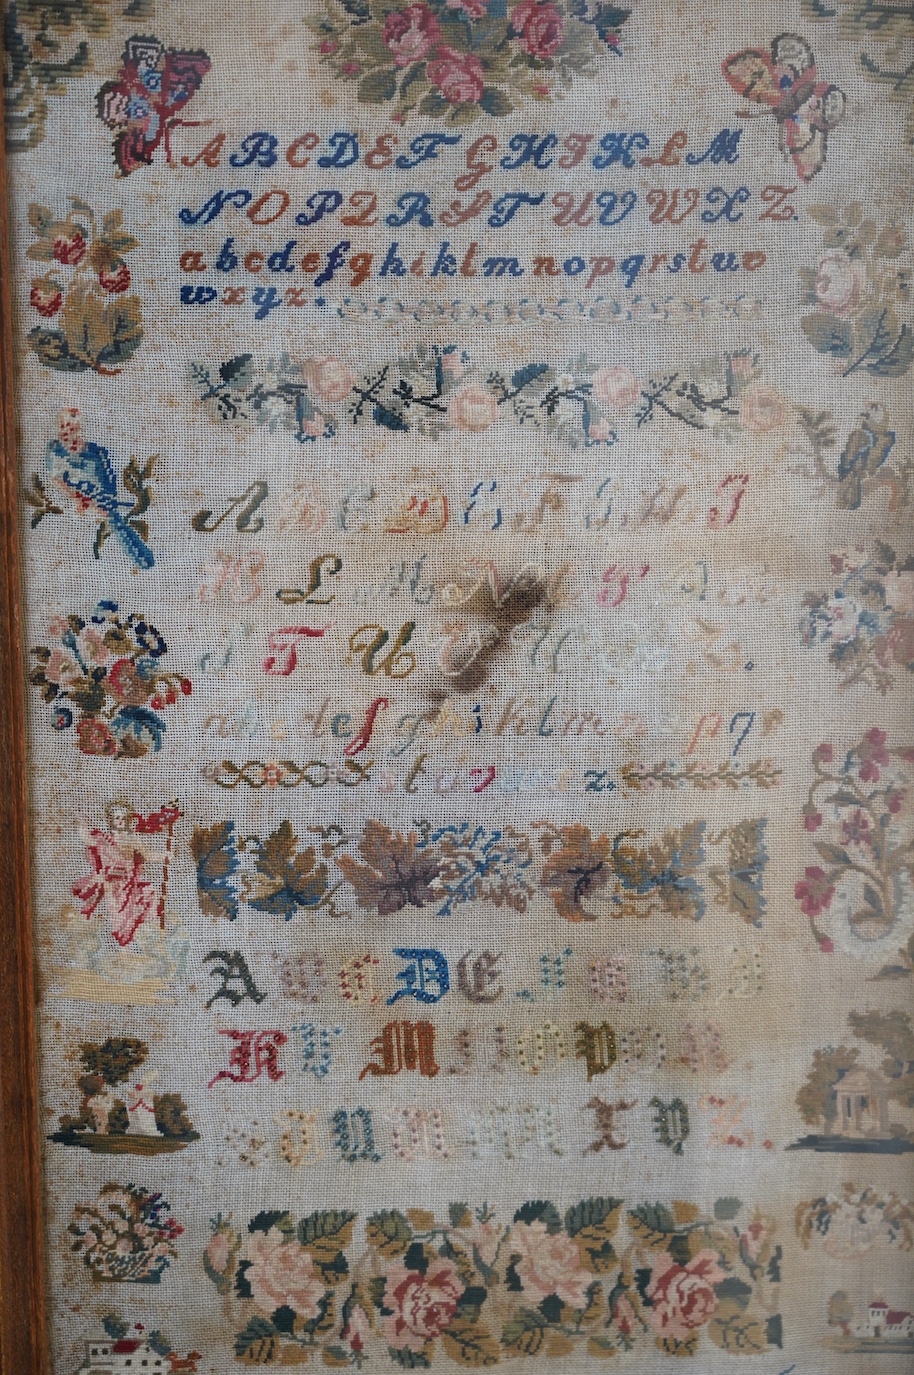 A B C D E F G H I K L M
N O P Q R S T U V W X Z.
a b c d e f g h i k l m n o p q r s t u v
w x y z.
A B C D E F G H I
K L M N P
T U
a b c d e f g h i k l m n o p q r
s t u v w x z.
A B C D E F G H I
K L M N O P Q R
S T U V W X Y Z.